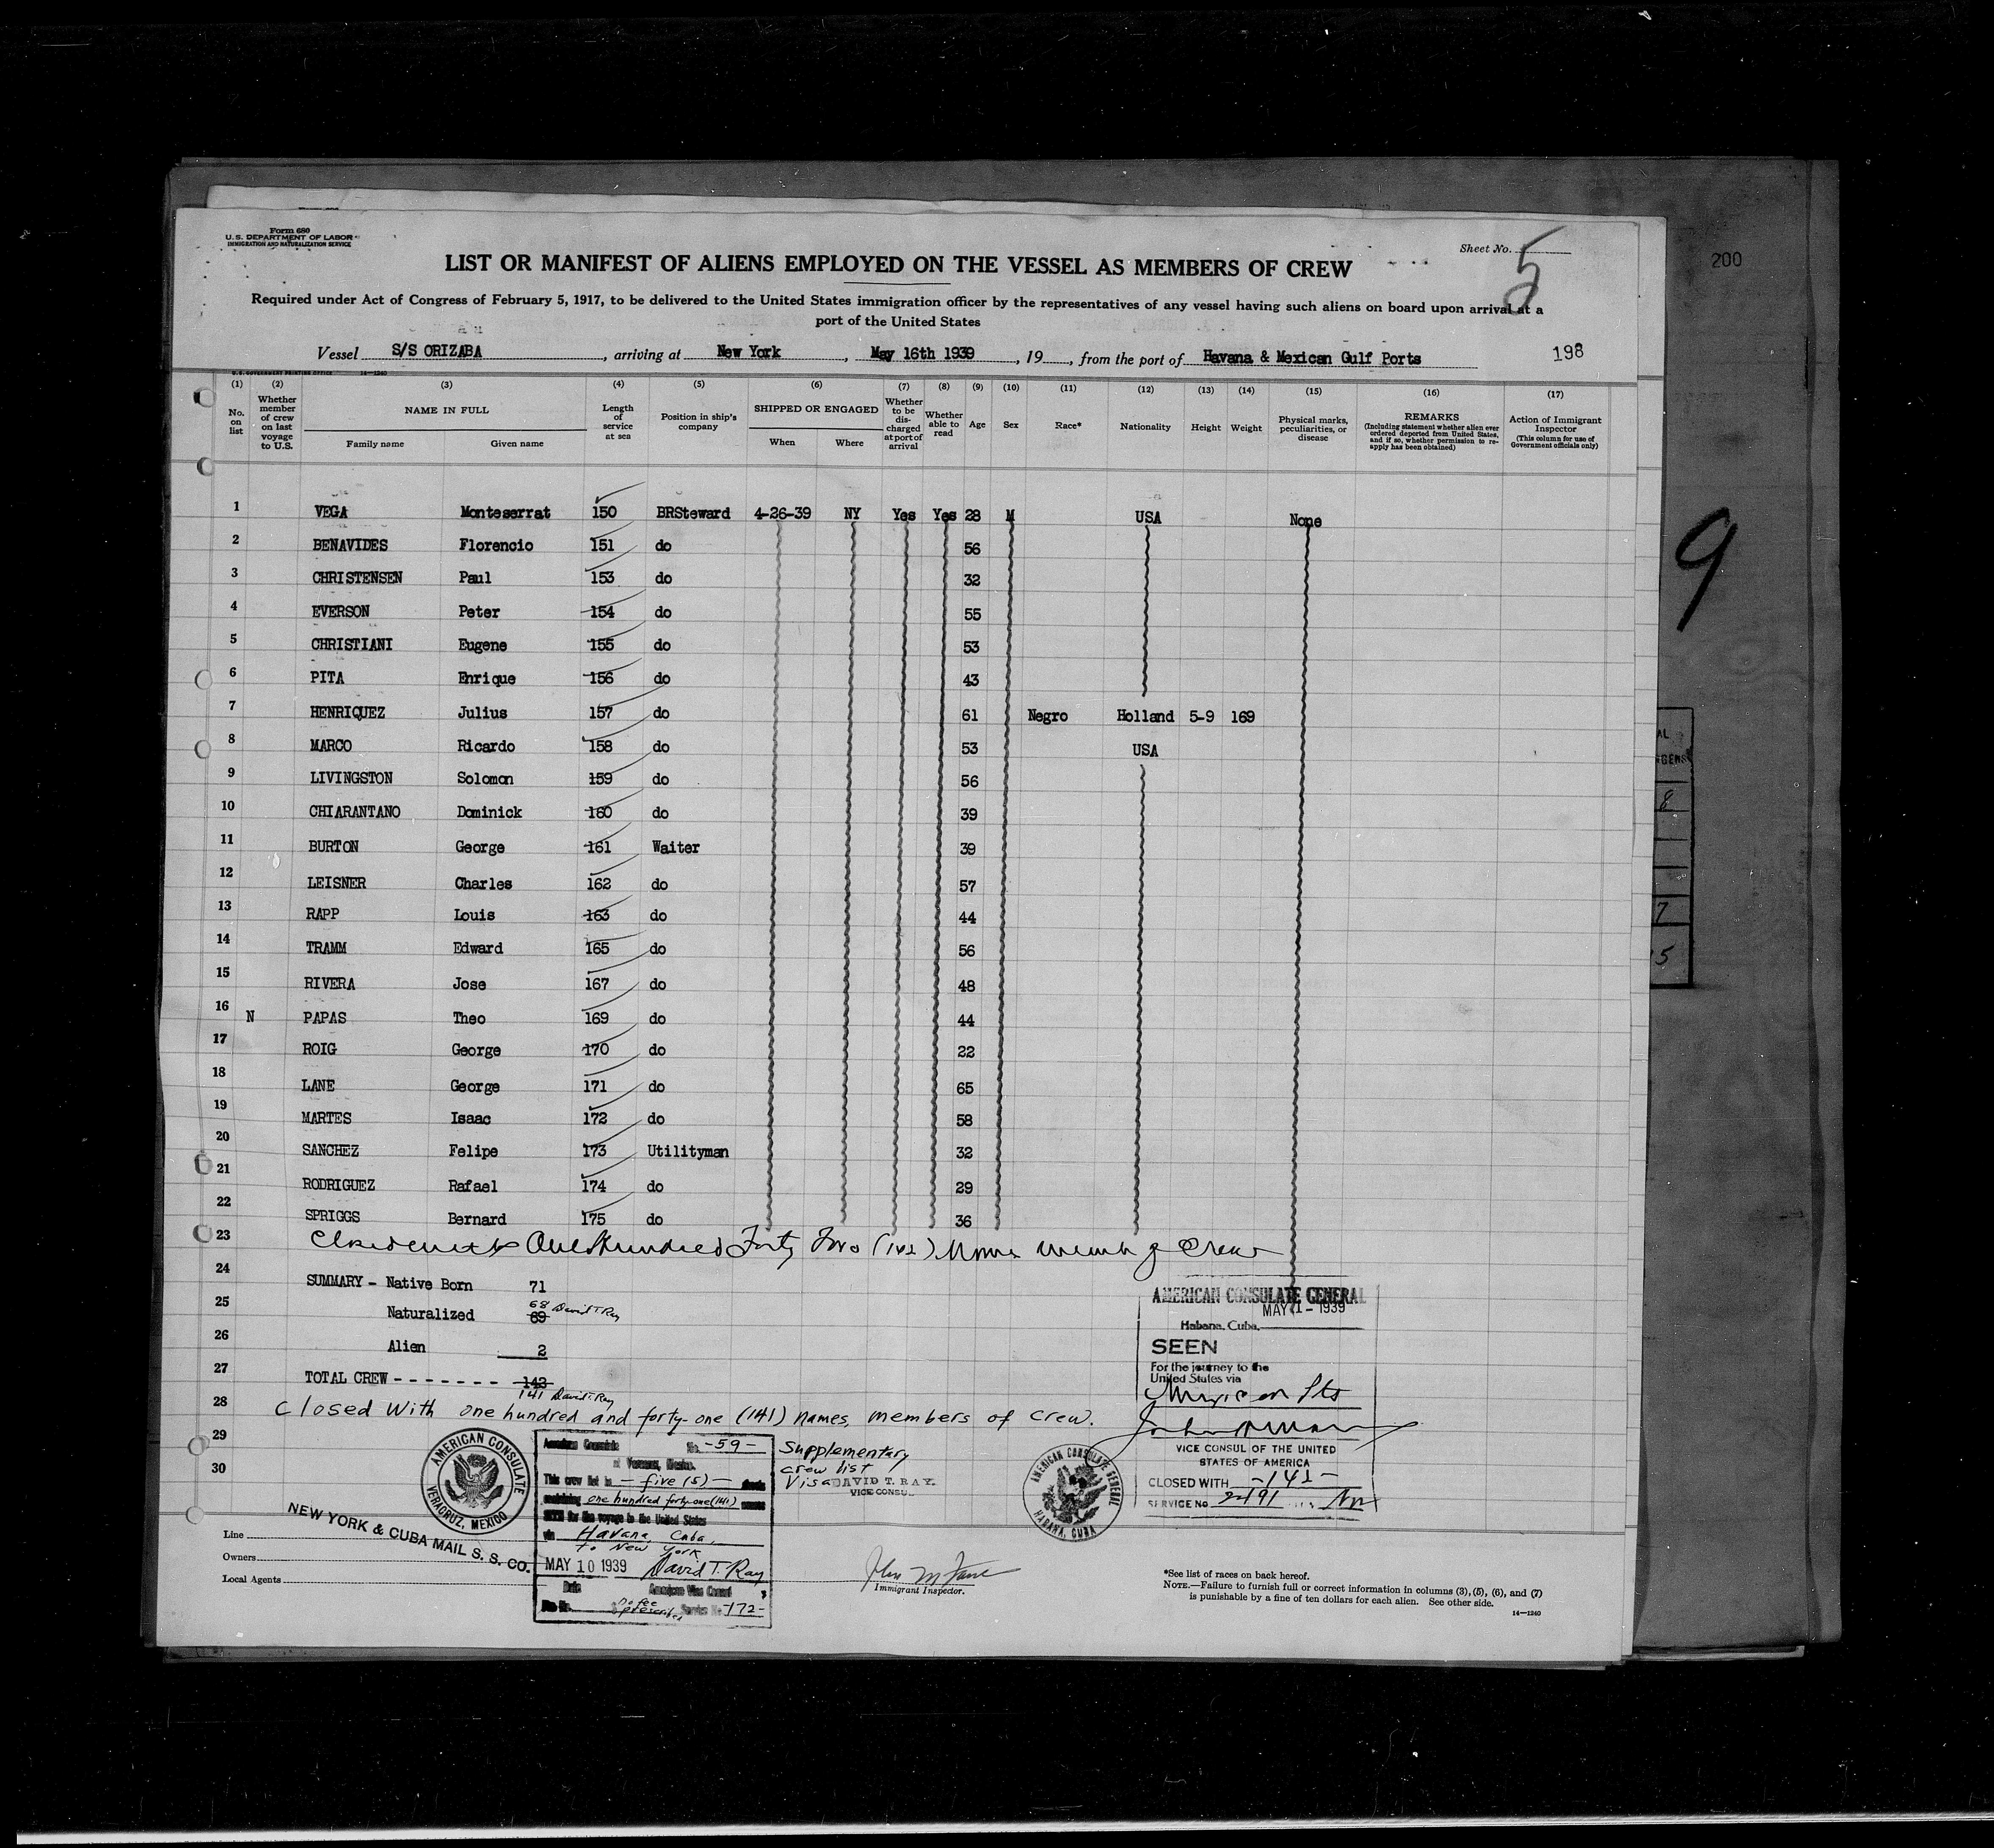 Form 680
U. S. DEPARTMENT OF LABOR
IMMIGRATION AND NATURALIZATION SERVICE
Sheet No. 5
LIST OR MANIFEST OF ALIENS EMPLOYED ON THE VESSEL AS MEMBERS OF CREW
200
Required under Act of Congress of February 5, 1917, to be delivered to the United States immigration officer by the representatives of any vessel having such aliens on board upon arrival at a
port of the United States
Vessel S/S ORIZABA, arriving at New York, May 16th 1939, 19, from the port of Havana & Mexican Gulf Ports
198
U. S. GOVERNMENT PRINTING OFFICE 14—1240
(1) (2) (3) (4) (5) (6) (7) (8) (9) (10) (11) (12) (13) (14) (15) (16) (17)
No. on list
Whether member of crew on last voyage to U.S.
NAME IN FULL
Family name Given name
Length of service at sea
Position in ship's company
SHIPPED OR ENGAGED
When Where
Whether to be discharged at port of arrival
Whether able to read
Age
Sex
Race*
Nationality
Height
Weight
Physical marks, peculiarities, or disease
REMARKS
(Including statement whether alien ever ordered deported from United States, and if so, whether permission to re-apply has been obtained)
Action of Immigrant Inspector
(This column for use of Government officials only)
1 VEGA Monteserrat 150 BRSteward 4-26-39 NY Yes Yes 28 M USA None
2 BENAVIDES Florencio 151 do 56
3 CHRISTENSEN Paul 153 do 32
4 EVERSON Peter 154 do 55
5 CHRISTIANI Eugene 155 do 53
6 PITA Enrique 156 do 43
7 HENRIQUEZ Julius 157 do 61 Negro Holland 5-9 169
8 MARCO Ricardo 158 do 53 USA
9 LIVINGSTON Solomon 159 do 56
10 CHIARANTANO Dominick 160 do 39
11 BURTON George 161 Waiter 39
12 LEISNER Charles 162 do 57
13 RAPP Louis 163 do 44
14 TRAMM Edward 165 do 56
15 RIVERA Jose 167 do 48
16 N PAPAS Theo 169 do 44
17 ROIG George 170 do 22
18 LANE George 171 do 65
19 MARTES Isaac 172 do 58
20 SANCHEZ Felipe 173 Utilityman 32
21 RODRIGUEZ Rafael 174 do 29
22 SPRIGGS Bernard 175 do 36
23 Closed with One Hundred Forty Two (142) Names members of Crew
24 SUMMARY - Native Born 71
25 Naturalized 69 68 David T. Ray
26 Alien 2
27 TOTAL CREW - - - - - - - 143
141 David T. Ray
28 Closed with one hundred and forty-one (141) names, members of crew.
29
30
9
AMERICAN CONSULATE GENERAL
MAY 11 - 1939
Habana, Cuba,
SEEN
For the journey to the
United States via
VICE CONSUL OF THE UNITED
STATES OF AMERICA
CLOSED WITH -142-
SERVICE No 2191
AMERICAN CONSULATE GENERAL
HABANA, CUBA
AMERICAN CONSULATE
VERACRUZ, MEXICO
American Consulate No. -59-
at Veracruz, Mexico.
This crew list in - five (5) - sheets
containing one hundred forty-one (141) names
SEEN for the voyage to the United States
via Havana, Cuba,
to New York
MAY 10 1939 David T. Ray
Date American Vice Consul
no fee
prescribed Service No. 172-
Supplementary
crew list
Visa DAVID T. RAY.
VICE CONSUL
NEW YORK & CUBA MAIL S. S. CO.
Line
Owners
Local Agents
Immigrant Inspector.
*See list of races on back hereof.
NOTE.—Failure to furnish full or correct information in columns (3), (5), (6), and (7)
is punishable by a fine of ten dollars for each alien. See other side.
14—1240
8
7
5